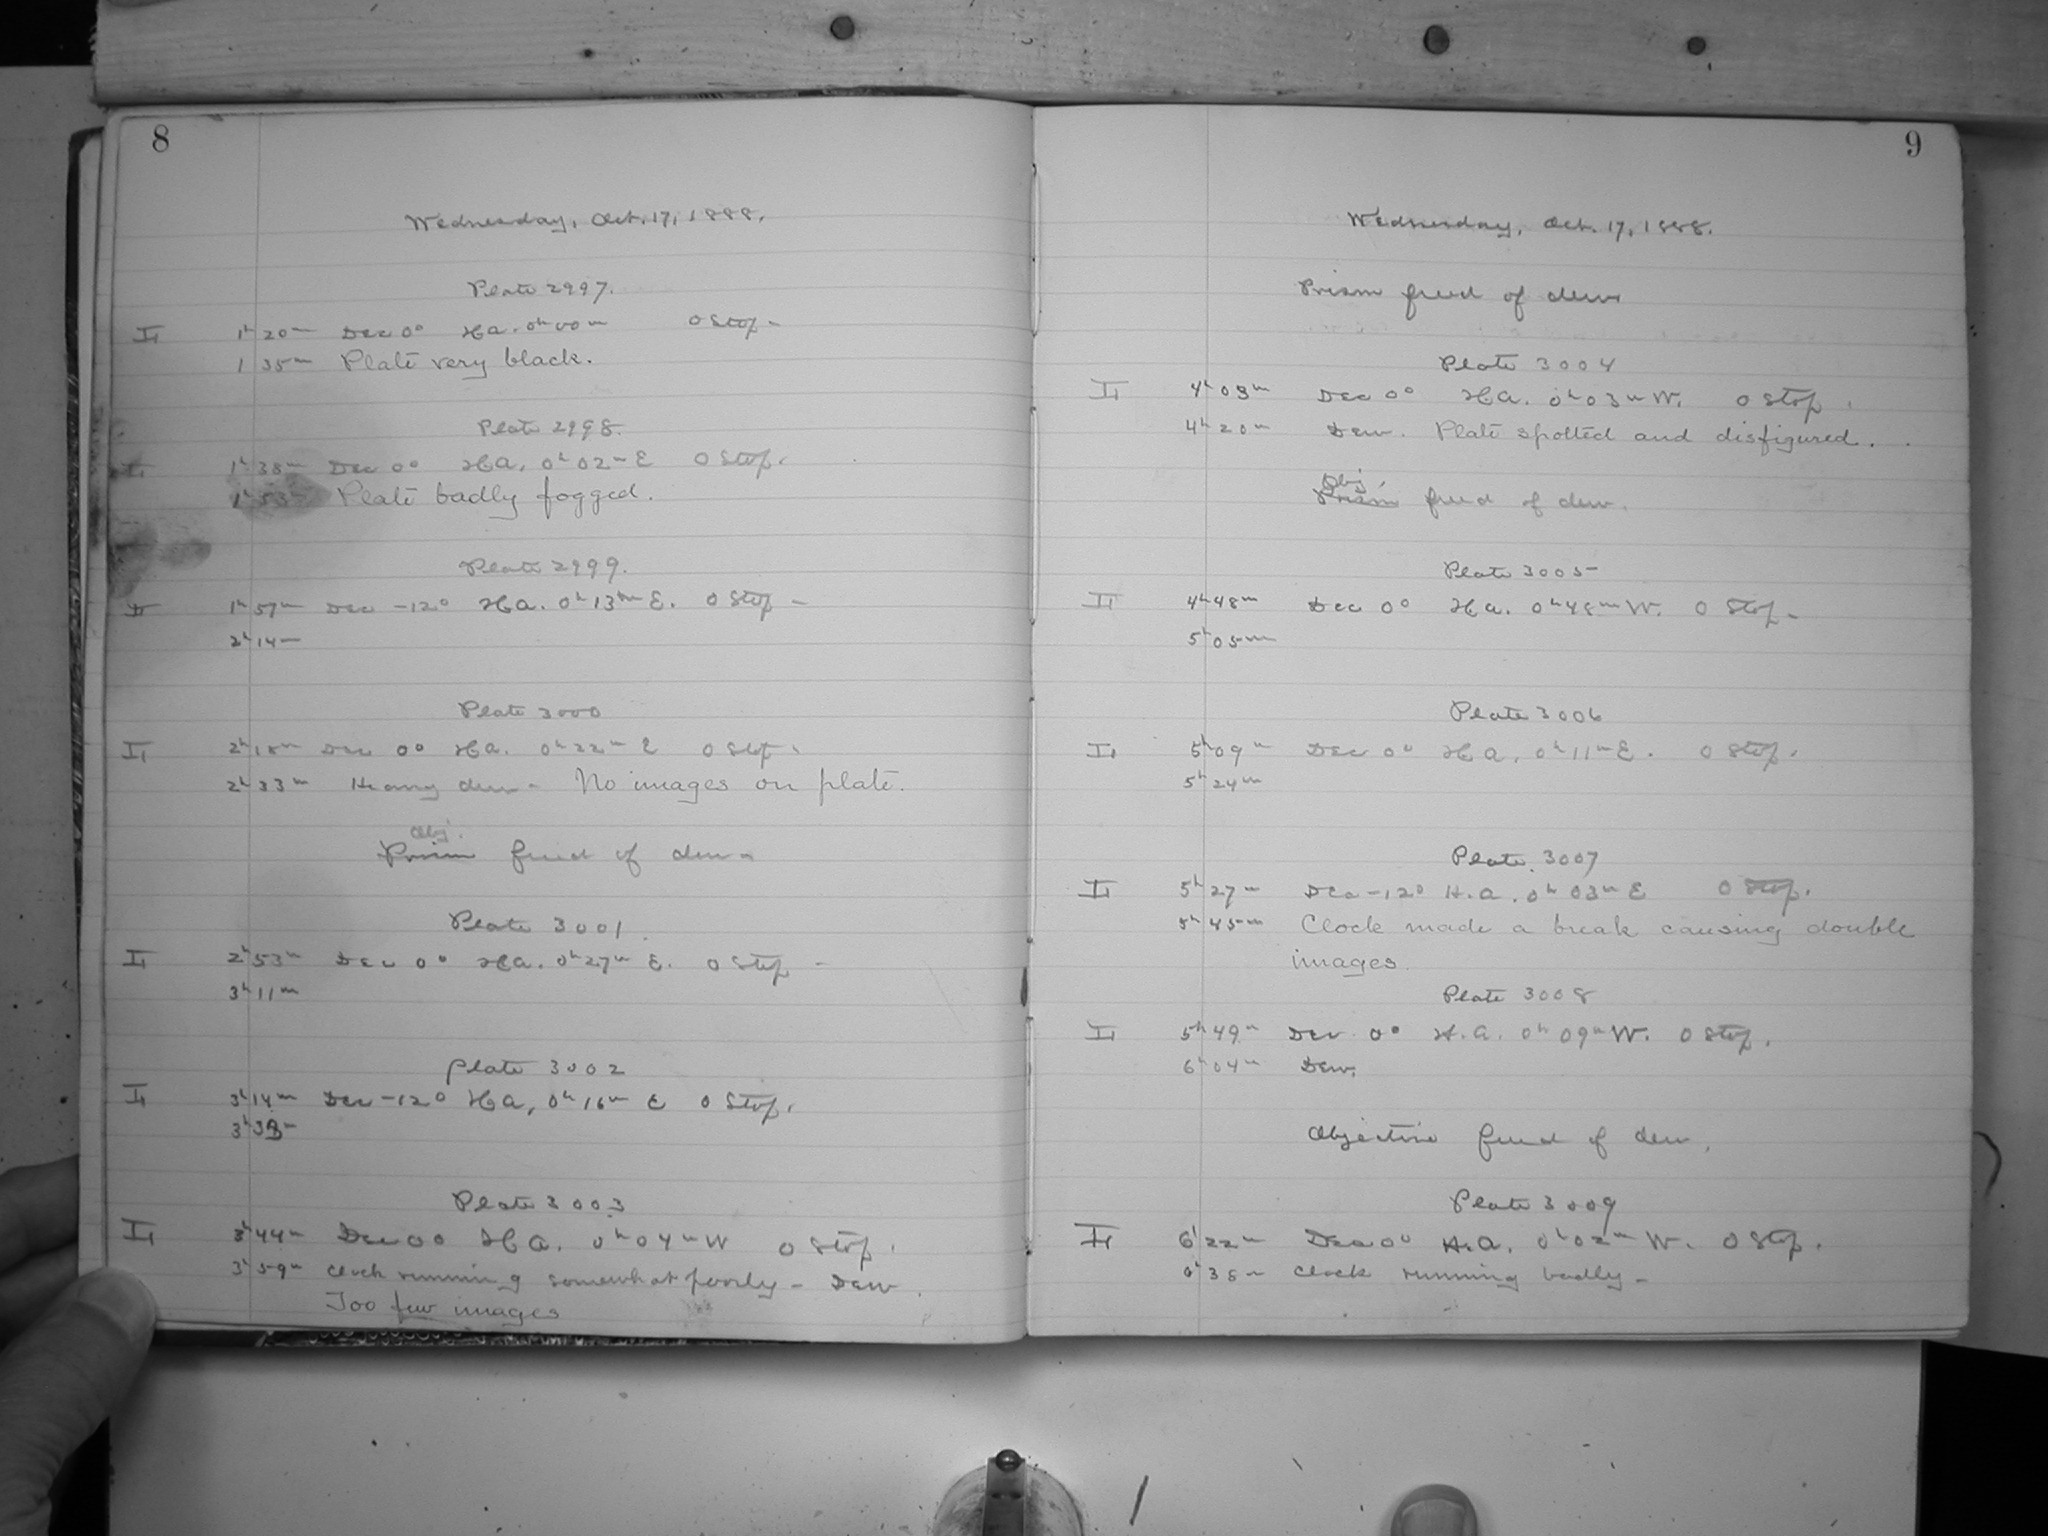 8
Wednesday, Oct. 17, 1888.
Plate 2997.
I 1h 20m Dec 0° H.a. 0h 00m 0 Stop.
1 35m Plate very black.
Plate 2998.
I 1h 38m Dec 0° H.a. 0h 02m E 0 Stop.
1h 53m Plate badly fogged.
Plate 2999.
I 1h 57m Dec -12° H.a. 0h 13m E. 0 Stop
2h 14m
Plate 3000
I 2h 18m Dec 0° H.a. 0h 22m E 0 Stop.
2h 33m Heavy dew - No images on plate.
Obj.
Prism freed of dew
Plate 3001.
I 2h 53m Dec 0° H.a. 0h 27m E. 0 Stop
3h 11m
Plate 3002
I 3h 14m Dec -12° H.a. 0h 16m E 0 Stop.
3h 33m
Plate 3003
I 3h 44m Dec 0° H.a. 0h 04m W 0 Stop.
3h 59m clock running somewhat poorly - Dew.
Too few images
9
Wednesday, Oct. 17, 1888.
Prism freed of dew
Plate 3004
I 4h 03m Dec 0° H.a. 0h 03m W. 0 Stop.
4h 20m Dew. Plate spotted and disfigured.
Obj.
Prism freed of dew.
Plate 3005
I 4h 48m Dec 0° H.a. 0h 48m W. 0 Stop.
5h 05m
Plate 3006
I 5h 09m Dec 0° H.a. 0h 11m E. 0 Stop.
5h 24m
Plate 3007
I 5h 27m Dec -12° H.a. 0h 03m E 0 Stop.
5h 45m Clock made a break causing double
images.
Plate 3008
I 5h 49m Dec 0° H.a. 0h 09m W. 0 Stop.
6h 04m Dew.
Objective freed of dew.
Plate 3009
I 6h 22m Dec 0° H.a. 0h 02m W. 0 Stop.
6h 38m clock running badly -